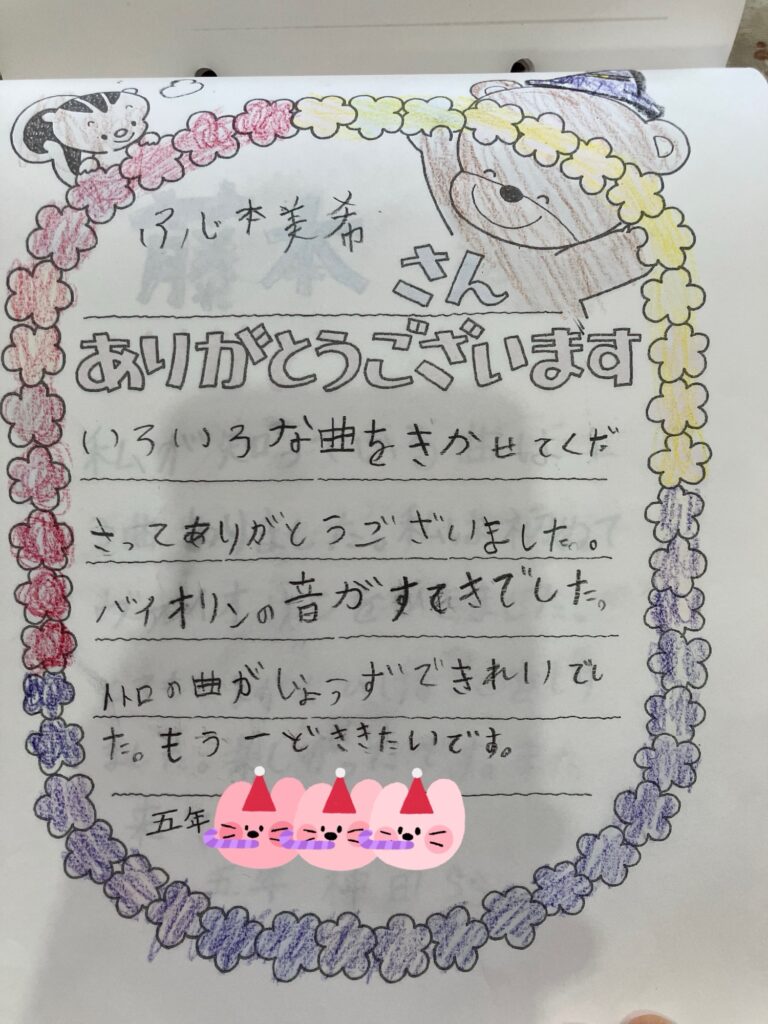 ふじ本美希
さん
ありがとうございます
いろいろな曲をきかせてくだ
さってありがとうございました。
バイオリンの音がすてきでした。
トトロの曲がじょうずできれいでし
た。もう一どききたいです。
五年